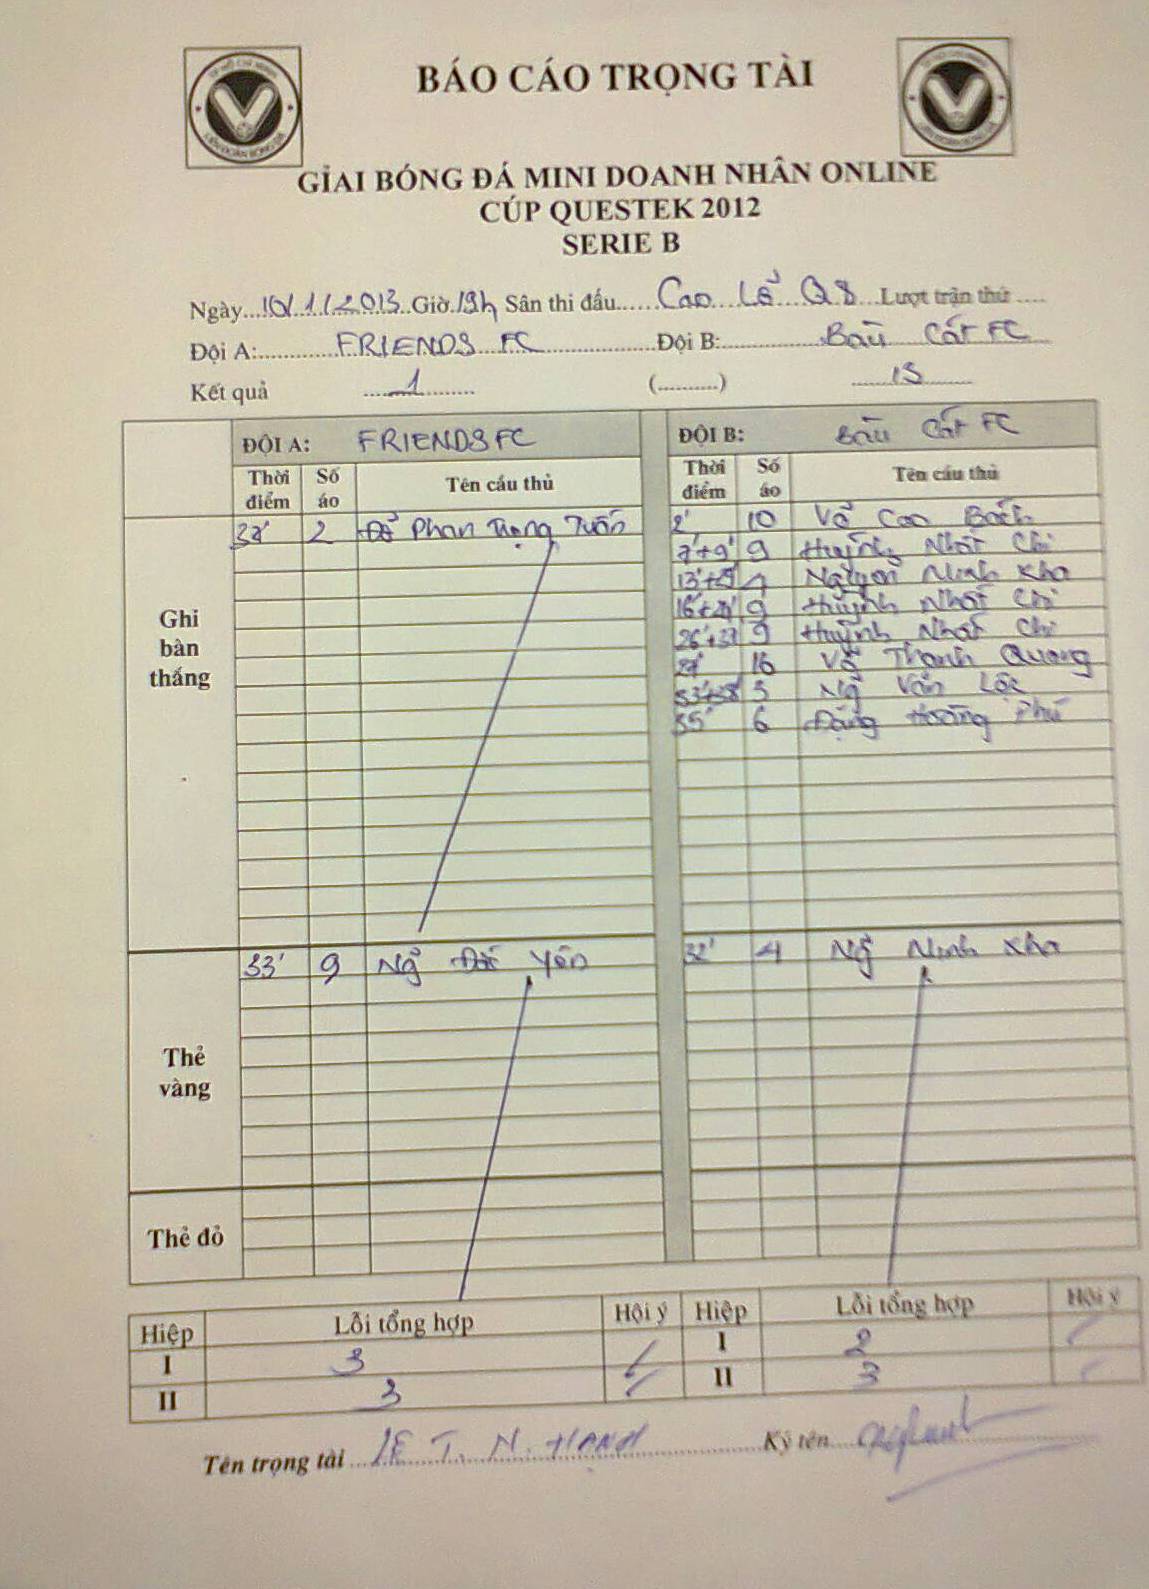 BÁO CÁO TRỌNG TÀI
GIẢI BÓNG ĐÁ MINI DOANH NHÂN ONLINE
CÚP QUESTEK 2012
SERIE B
Ngày....10/1/2013 Giờ.19h Sân thi đấu..... Cao Lỗ Q8 Lượt trận thứ .....
Đội A: FRIENDS FC Đội B: Bàu Cát FC
Kết quả 1 (...........) 13
ĐỘI A: FRIENDS FC ĐỘI B: Bàu Cát FC
Thời điểm Số áo Tên cầu thủ Thời điểm Số áo Tên cầu thủ
Ghi bàn thắng
2 Đỗ Phan Trọng Tuấn 2' 10 Võ Cao Bách
7'+9' 9 Huỳnh Nhất Chi
4 Nguyễn Minh Kha
9 Huỳnh Nhất Chi
9 Huỳnh Nhất Chi
16 Võ Thanh Quang
3 Ng~ Văn Lộc
35' 6 Đặng Hoàng Phú
Thẻ vàng
33' 9 Ng~ Yên 32' 4 Ng~ Minh Kha
Thẻ đỏ
Hiệp Lỗi tổng hợp Hội ý Hiệp Lỗi tổng hợp Hội ý
I 3 I 2
II 3 II 3
Tên trọng tài LE T. N. HẠNH Ký tên